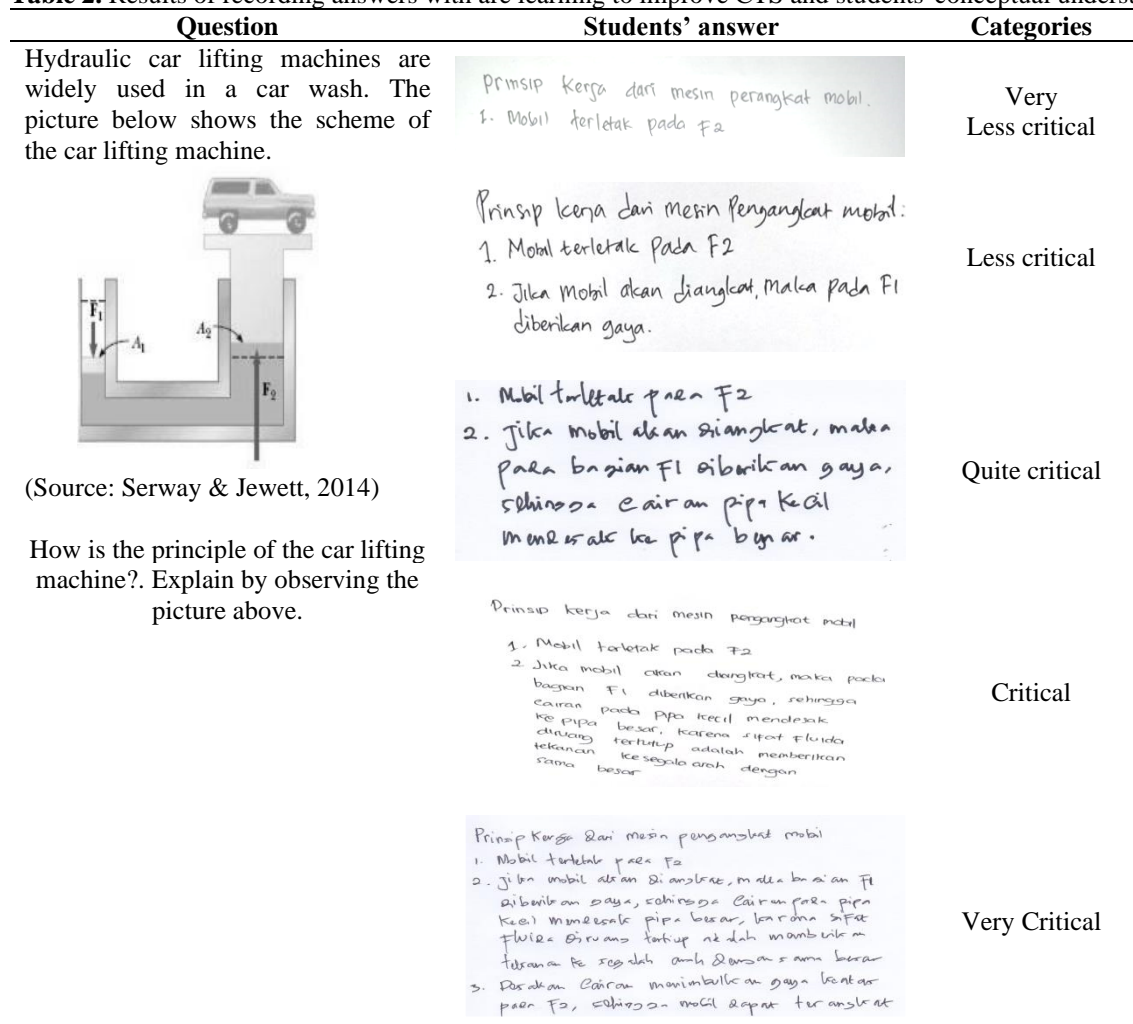 Table 2. Results of recording answers with are learning to improve CTS and students' conceptual underst
Question
Students' answer
Categories
Hydraulic car lifting machines are
widely used in a car wash. The
picture below shows the scheme of
the car lifting machine.
F1
A1
A2
F2
(Source: Serway & Jewett, 2014)
How is the principle of the car lifting
machine?. Explain by observing the
picture above.
Prinsip kerja dari mesin perangkat mobil.
1. Mobil terletak pada F2
Very
Less critical
Prinsip kerja dari mesin Pengangkat mobil:
1. Mobil terletak Pada F2
2. Jika mobil akan diangkat, maka pada F1
diberikan gaya.
Less critical
1. Mobil terletak pada F2
2. Jika mobil akan diangkat, maka
pada bagian F1 diberikan gaya,
sehingga cairan pipa kecil
mendesak ke pipa besar.
Quite critical
Prinsip kerja dari mesin pengangkat mobil
1. Mobil terletak pada F2
2 Jika mobil akan diangkat, maka pada
bagian F1 diberikan gaya, sehingga
cairan pada pipa kecil mendesak
ke pipa besar, karena sifat fluida
diruang tertutup adalah memberikan
tekanan kesegala arah dengan
sama besar
Critical
Prinsip Kerja dari mesin pengangkat mobil
1. Mobil terletak pada F2
2. Jika mobil akan diangkat, maka bagian F1
diberikan gaya, sehingga cairan pada pipa
kecil mendesak pipa besar, karena sifat
fluida diruang adalah memberikan
ke arah dengan sama besar
3. Desakan cairan menimbulkan gaya keatas
pada F2, sehingga mobil dapat terangkat
Very Critical